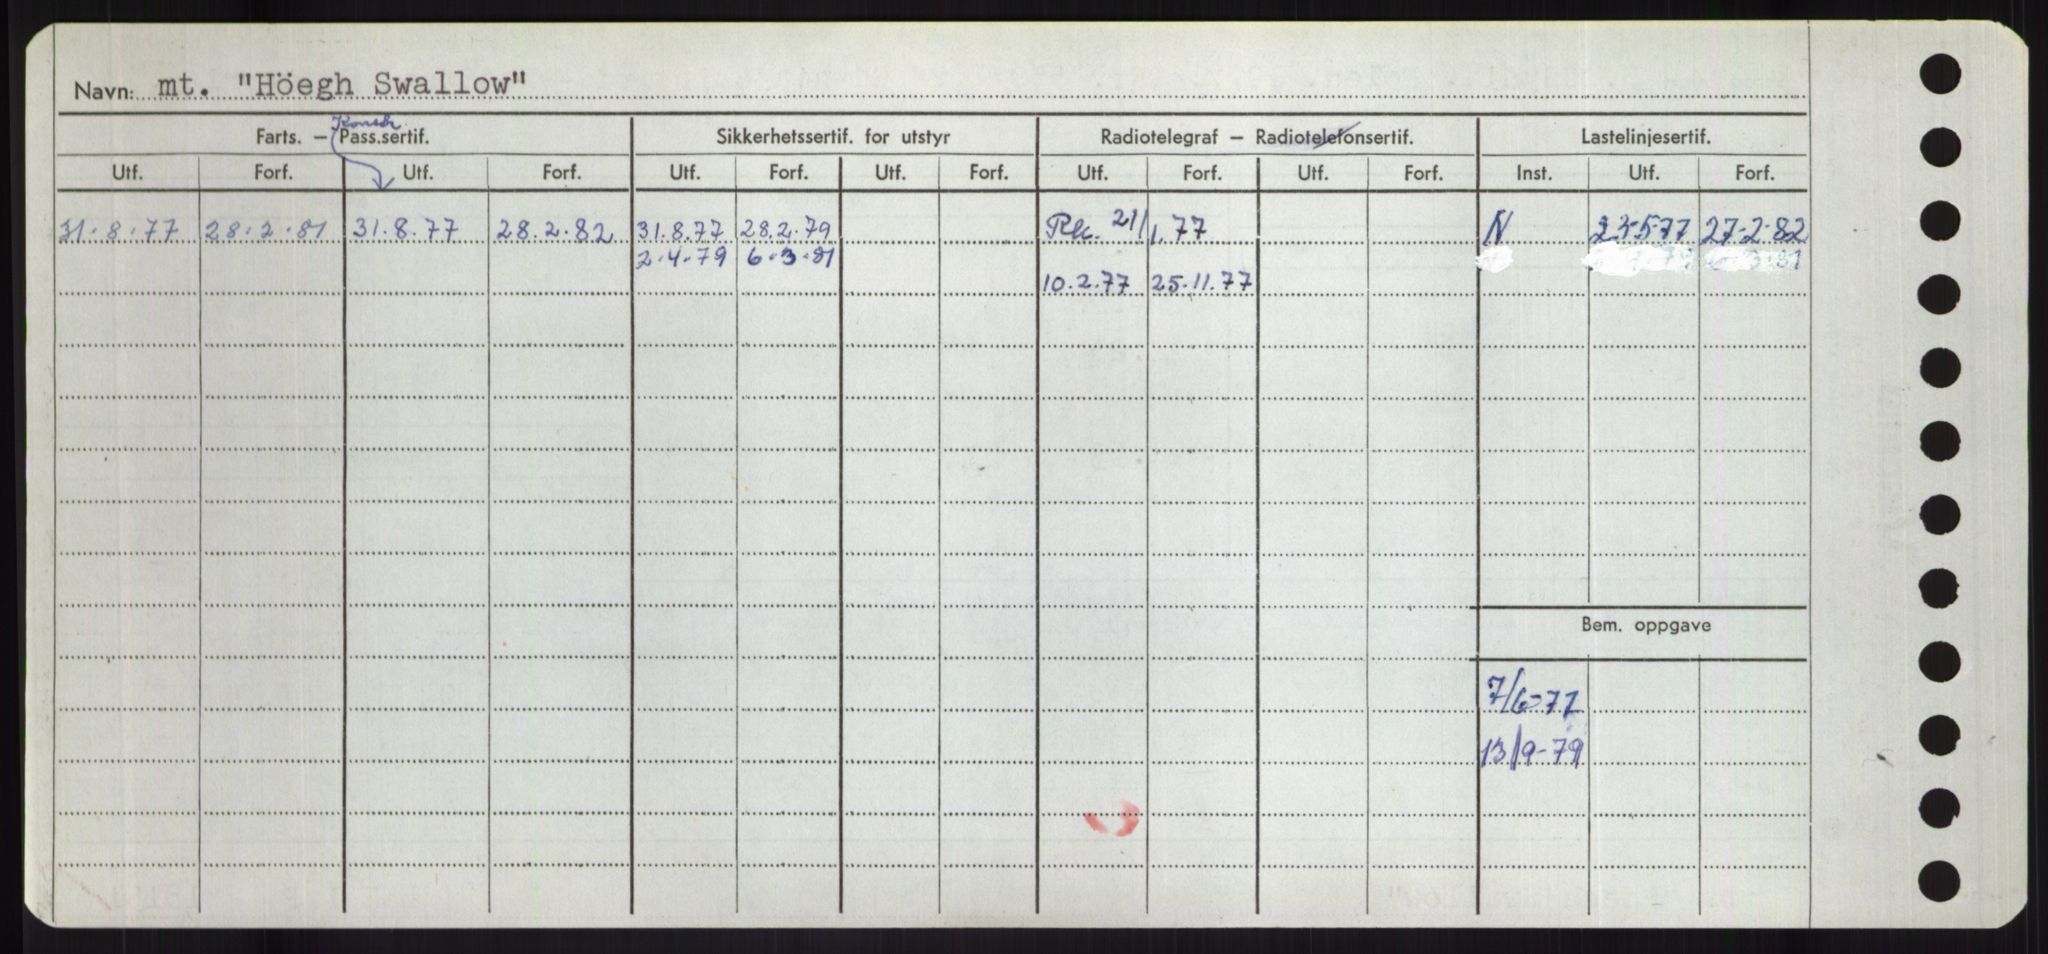 Navn: mt. "Höegh Swallow"
Konstr.
Farts. — Pass.sertif. Sikkerhetssertif. for utstyr Radiotelegraf — Radiotelefonsertif. Lastelinjesertif.
Utf. Forf. Utf. Forf. Utf. Forf. Utf. Forf. Utf. Forf. Utf. Forf. Inst. Utf. Forf.
31.8.77 28.2.81 31.8.77 28.2.82 31.8.77 28.2.79 21/1.77 N 23-5-77 27-2-82
2.4.79 6.3.81
10.2.77 25.11.77
Bem. oppgave
7/6-77
13/9-79